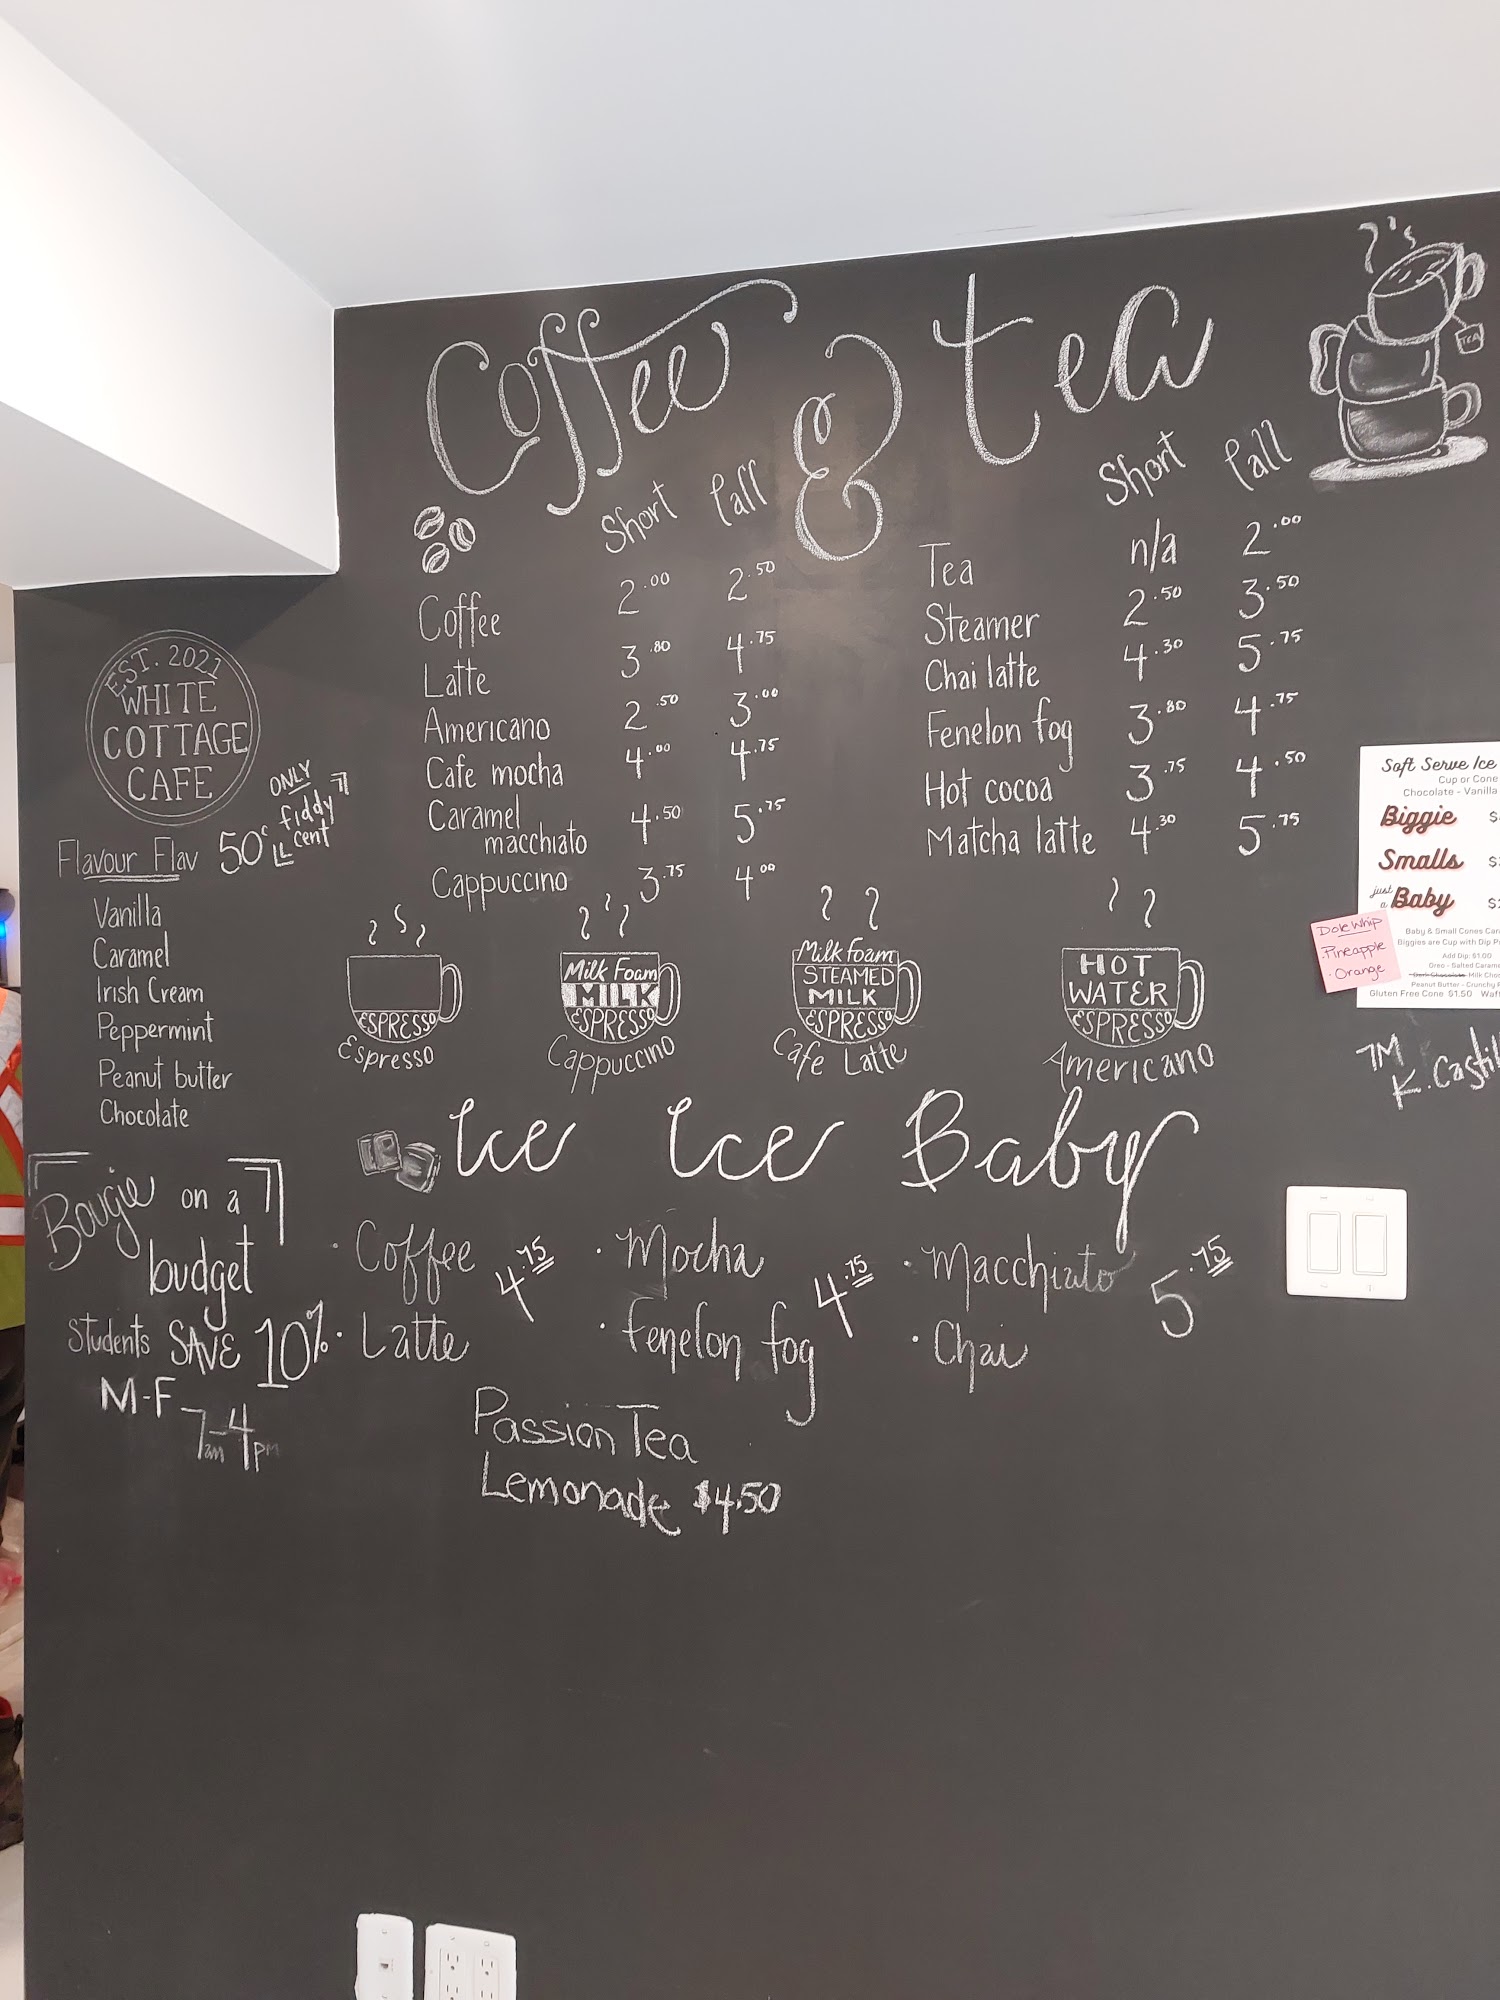 Coffee & tea
TEA
Short Tall
Coffee 2.00 2.50
Latte 3.80 4.75
Americano 2.50 3.00
Cafe mocha 4.00 4.75
Caramel
macchiato 4.50 5.75
Cappuccino 3.75 4.00
Short Tall
Tea n/a 2.00
Steamer 2.50 3.50
Chai latte 4.30 5.75
Fenelon fog 3.80 4.75
Hot cocoa 3.75 4.50
Matcha latte 4.30 5.75
EST. 2021
WHITE
COTTAGE
CAFE
Flavour Flav 50¢
ONLY
fiddy
cent
Vanilla
Caramel
Irish Cream
Peppermint
Peanut butter
Chocolate
ESPRESSO
Espresso
Milk Foam
MILK
ESPRESSO
Cappuccino
Milk Foam
STEAMED
MILK
ESPRESSO
Cafe Latte
HOT
WATER
ESPRESSO
Americano
Soft Serve Ice
Cup or Cone
Chocolate - Vanilla
Biggie $
Smalls $
just
a Baby $
Baby & Small Cones
Biggies are Cup with Dip
Add Dip: $1.00
Oreo - Salted
Milk
Peanut Butter - Crunchy
Gluten Free Cone $1.50
Dole Whip
·Pineapple
·Orange
K.
Bougie on a
budget
Students SAVE 10%
M-F 7am-4pm
Ice Ice Baby
· Coffee 4.75
· Latte
· Mocha 4.75
· Fenelon fog
· Macchiato 5.75
· Chai
Passion Tea
Lemonade $4.50